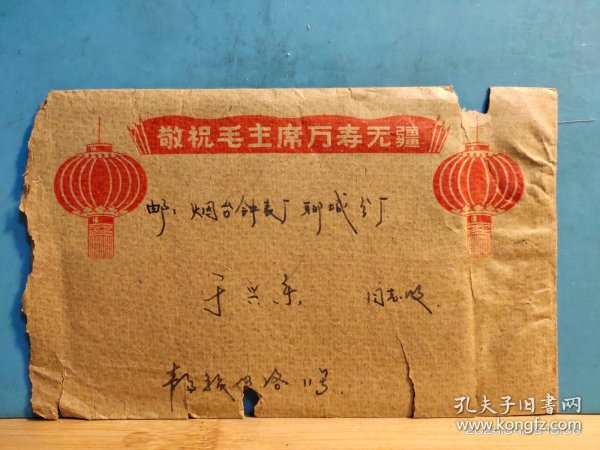 敬祝毛主席万寿无疆
邮：烟台钟表厂聊城分厂
于兴 同志收
11号
孔夫子旧书网
www.kongfz.com